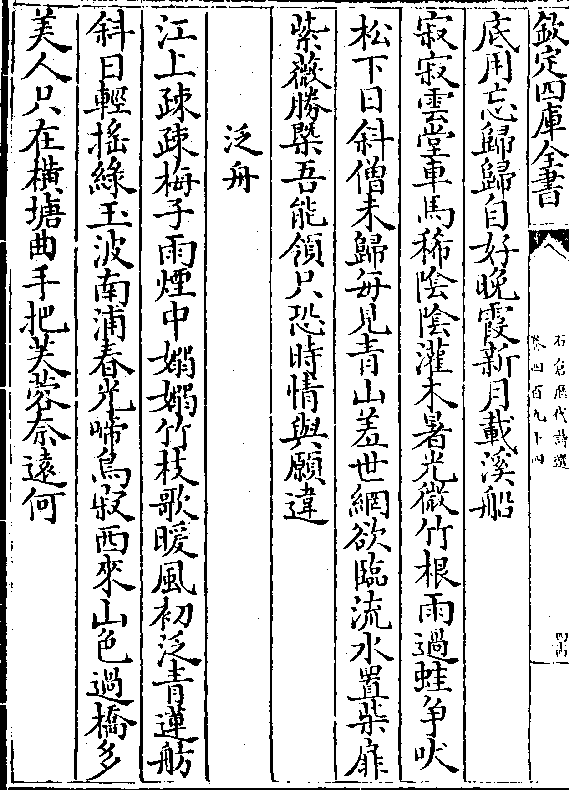 欽定四庫全書
石倉歴代詩選
卷四百九十四
底用忘歸歸自好晚霞新月載溪船
寂寂雲堂車馬稀陰陰灌木暑光微竹根雨過蛙爭吠
松下日斜僧未歸每見青山羞世網欲臨流水置柴扉
紫薇勝槩吾能領只恐時情與願違
泛舟
江上疎疎梅子雨煙中嫋嫋竹枝歌暖風初泛青蓮舫
斜日輕搖綠玉波南浦春光啼鳥寂西來山色過橋多
美人只在橫塘曲手把芙蓉奈遠何